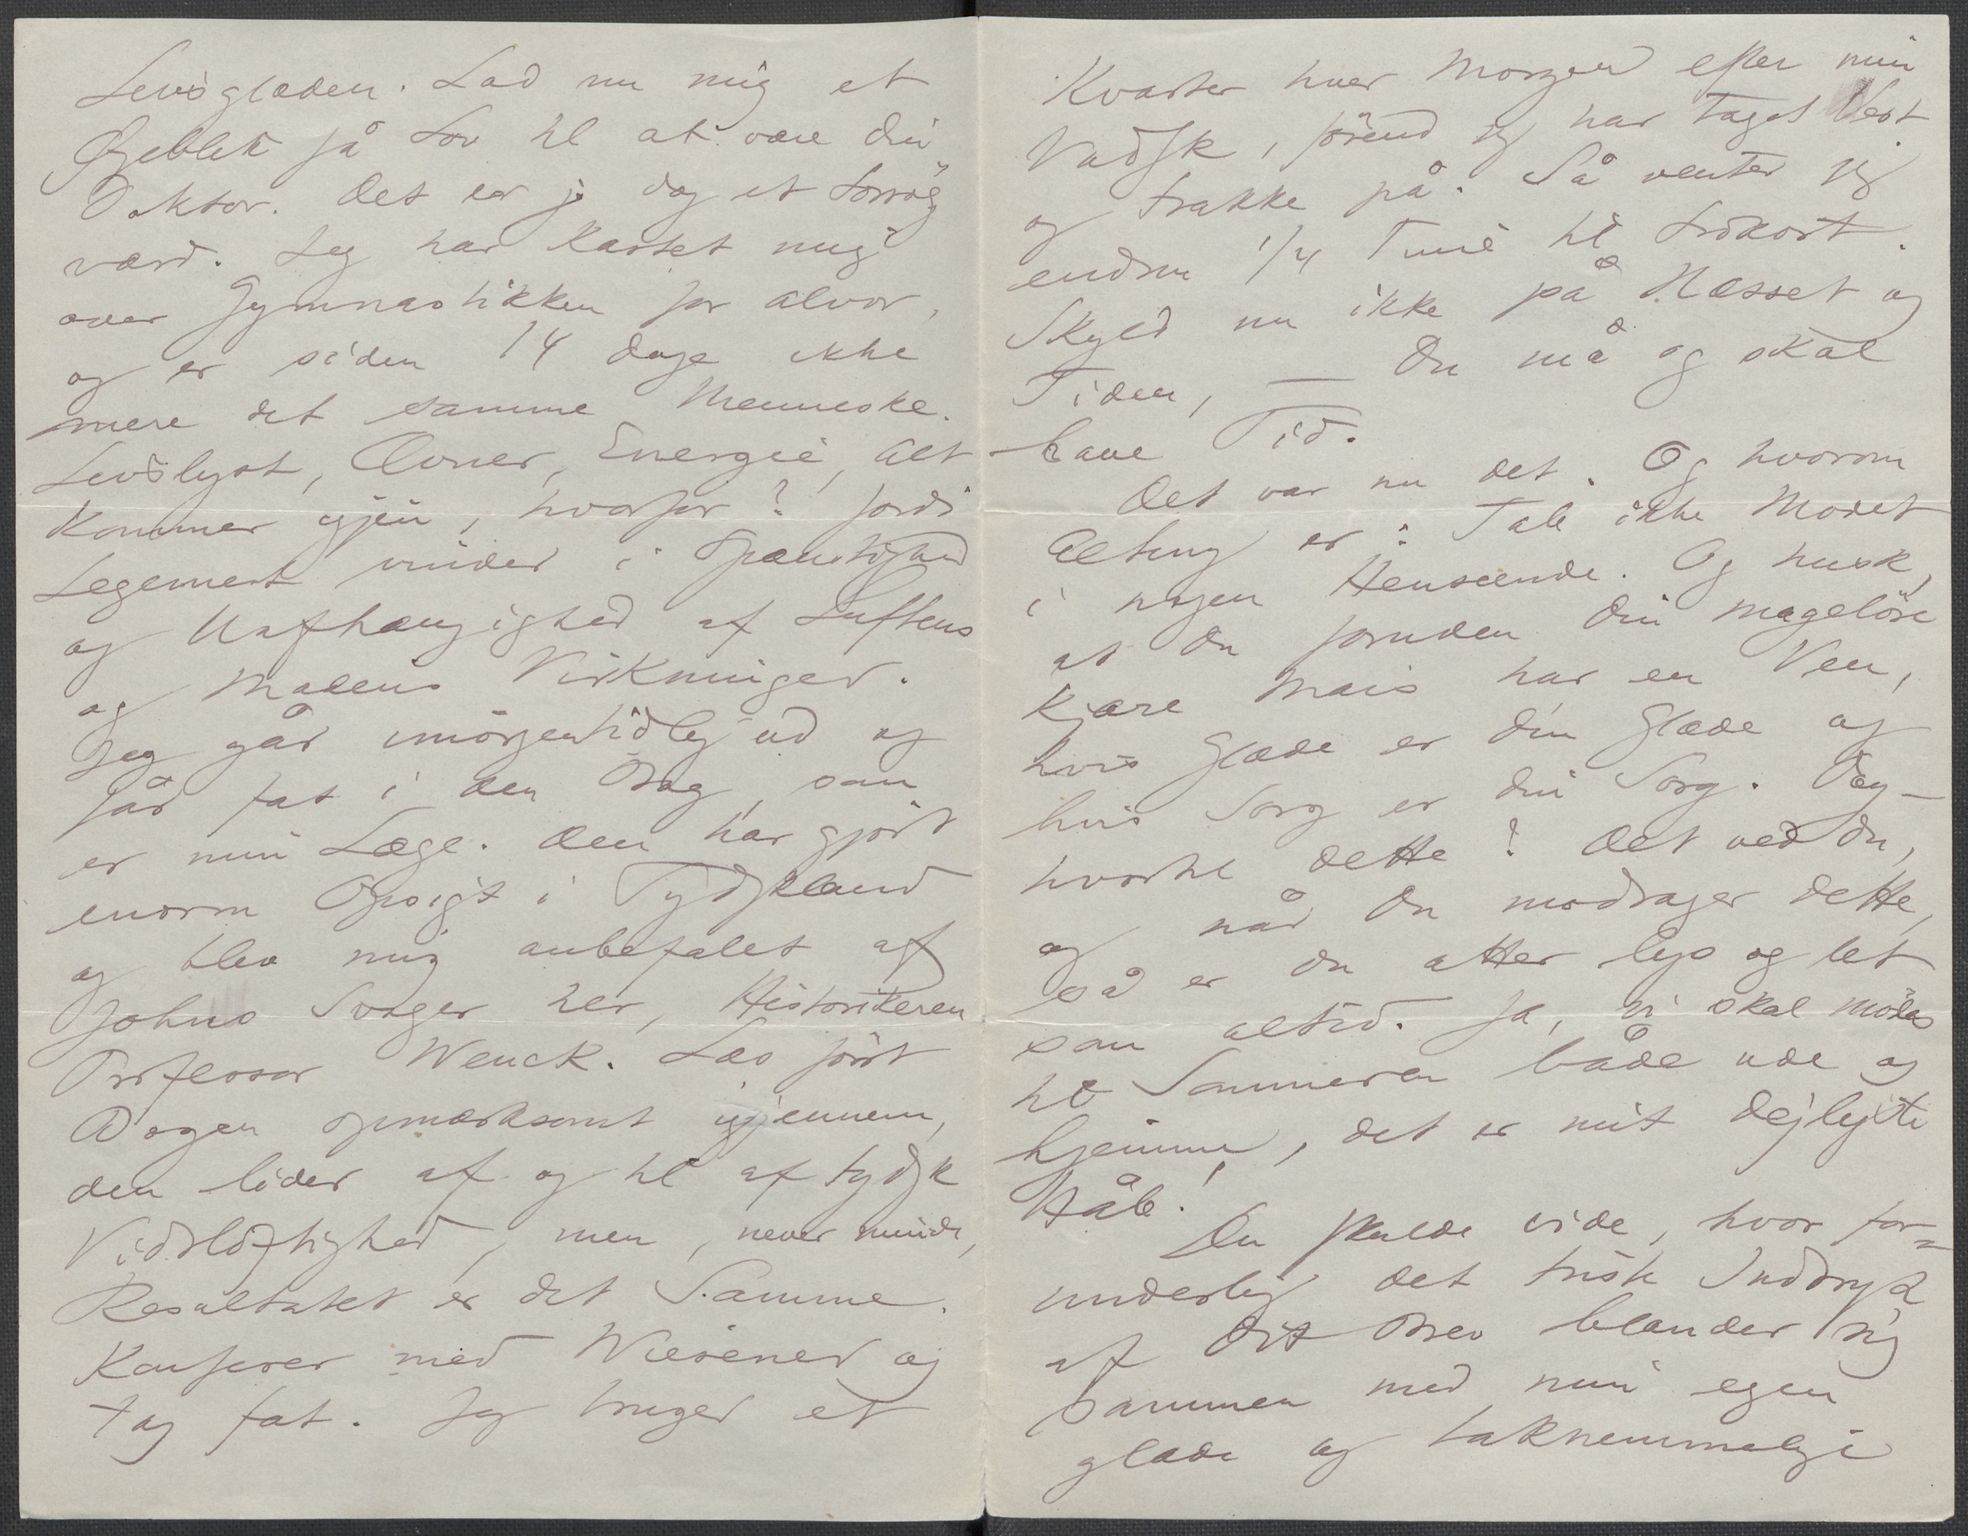 Livsglæden. Lad nu mig et
Øjeblik få Lov til at være din
Doktor. Det er jo dog et Forsög
værd. Jeg har kastet mig
over Gymnastikken for Alvor,
og er siden 14 Dage ikke
mere det samme Menneske.
Livslyst, Ævner, Energie, Alt
kommer igjen, hvorfor? fordi
Legemet vinder i Spænstighed
og Uafhængighed af Luftens
og Madens Virkninger.
Jeg går imorgentidlig ud og
får fat i den Bog, som
er min Læge. Den har gjört
enorm Opsigt i Tydskland
og blev mig anbefalet af
Johns Svoger her, Historikeren
Professor Wenck. Læs först
Bogen opmærksomt igjennem,
den lider af og til af tydsk
Vidtlöftighed, men, never mind,
Resultatet er det Samme.
Konferer med Wiesener og
tag fat. Jeg bruger et
Kvarter hver Morgen efter min
Vadsk, förend jeg har taget Vest
og Frakke på. Så venter jeg
endnu 1/4 Time til Frokost.
Skyld nu ikke på Næsset og
Tiden, — Du må og skal
have Tid.
Det var nu det. Og hvorom
Alting er: Tab ikke Modet
i nogen Henseende. Og husk,
at Du foruden Din mageløse
kjære Mais har en Ven,
hvis Glæde er din Glæde og
hvis Sorg er din Sorg. Dog –
hvortil dette? Det ved Du,
og når Du modtager dette,
så er Du atter lys og let
som altid. Ja, vi skal mödes
til Sommeren både ude og
hjemme, det er mit dejligste
Håb!
Du skulde vide, hvor for=
underlig det triste Indtryk
af Dit Brev blander sig
sammen med min egen
glade og taknemmelige